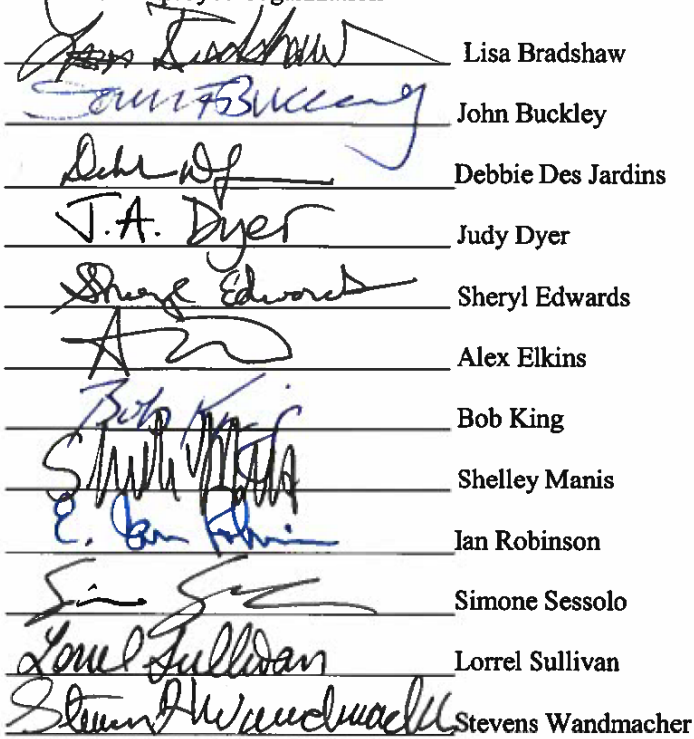 Lisa Bradshaw Lisa Bradshaw
John Buckley
Debbie Des Jardins
J.A. Dyer Judy Dyer
Sheryl Edwards Sheryl Edwards
Alex Elkins
Bob King Bob King
Shelley Manis
E. Ian Robinson Ian Robinson
Simone Sessolo
Lorrel Sullivan Lorrel Sullivan
Stevens Wandmacher